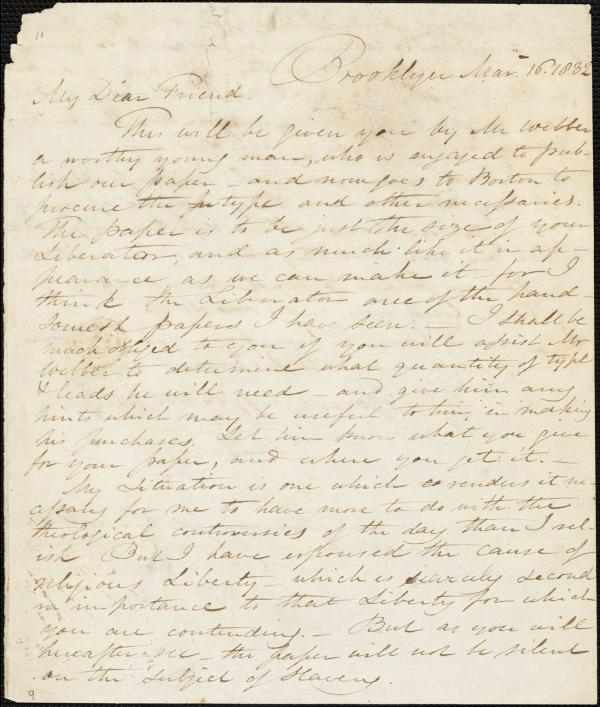 10
Brooklyn Mar. 16. 1832
My Dear Friend.
This will be given you by Mr Webber
a worthy young man, who is engaged to pub-
lish our paper – and now goes to Boston to
procure the type and other necessaries.
The paper is to be just the size of your
Liberator, and as much like it in ap-
pearance as we can make it – for I
think the Liberator one of the hand-
somest papers I have seen. – I shall be
much obliged to you if you will assist Mr
Webber to determine what quantity of type
& leads he will need – and give him any
hints which may be useful to him in making
his purchases. Let him know what you give
for your paper, and where you get it. –
My Situation is one which renders it ne-
cessary for me to have more to do with the
theological controversies of the day than I rel-
ish But I have espoused the cause of
religious Liberty – which is scarcely second
in importance to that Liberty for which
you are contending. – But as you will
hereafter see – the paper will not be silent
on the Subject of Slavery.
9